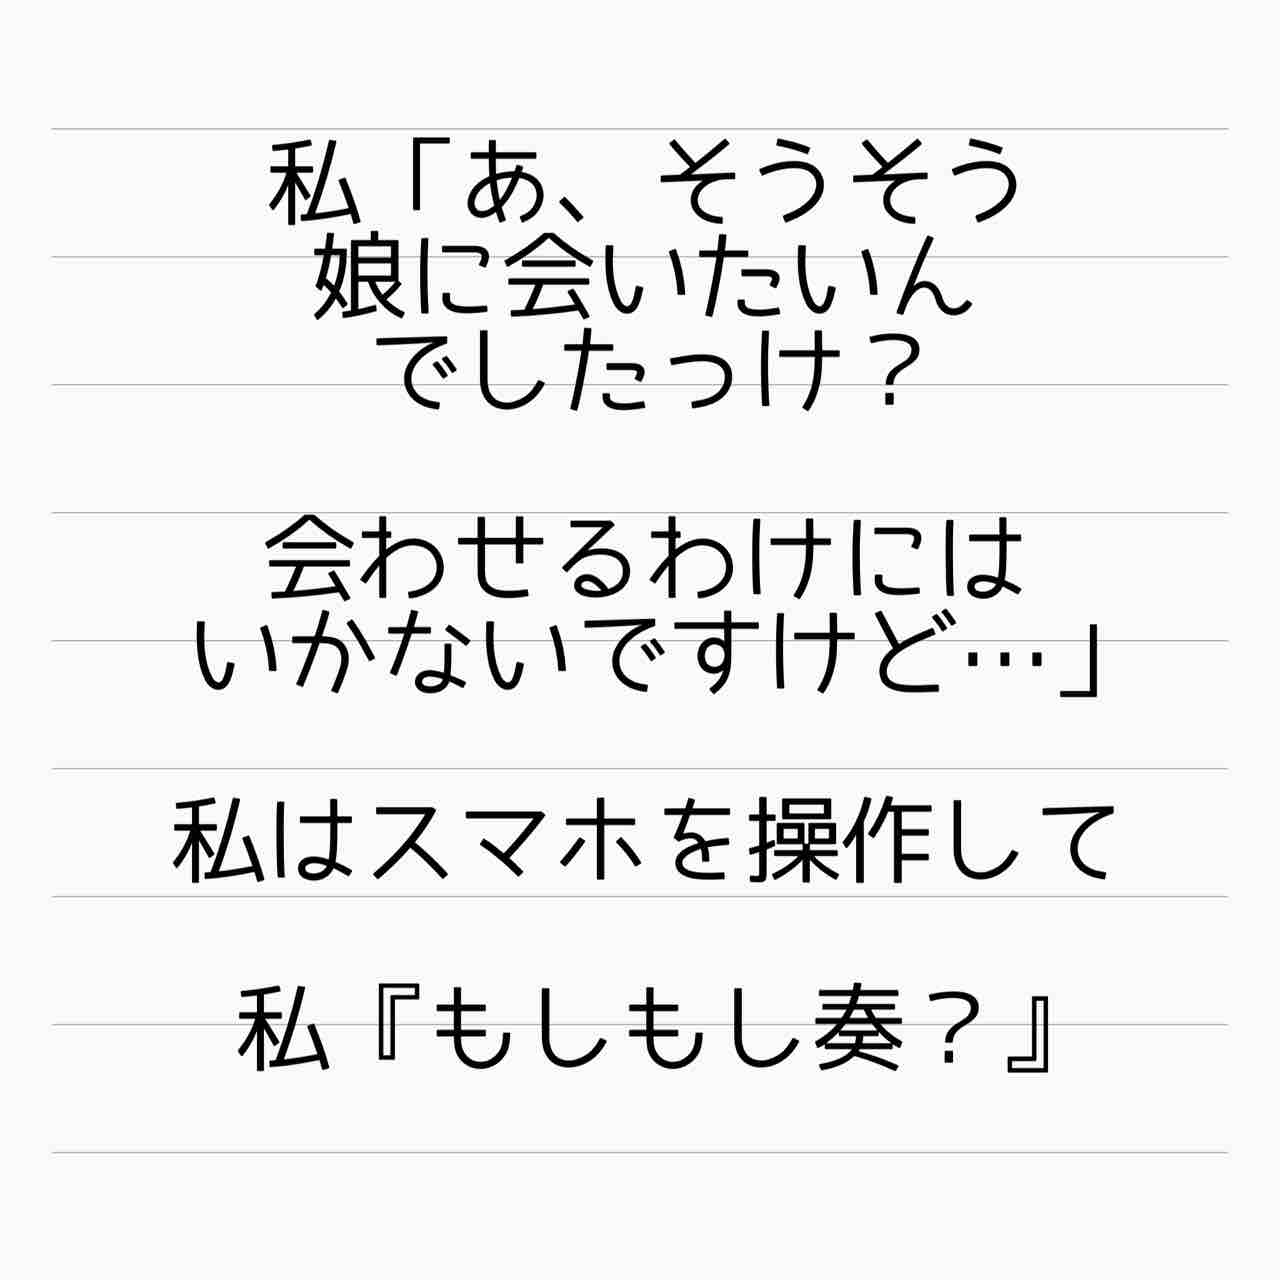 私「あ、そうそう
娘に会いたいん
でしたっけ？
会わせるわけには
いかないですけど…」
私はスマホを操作して
私『もしもし奏？』